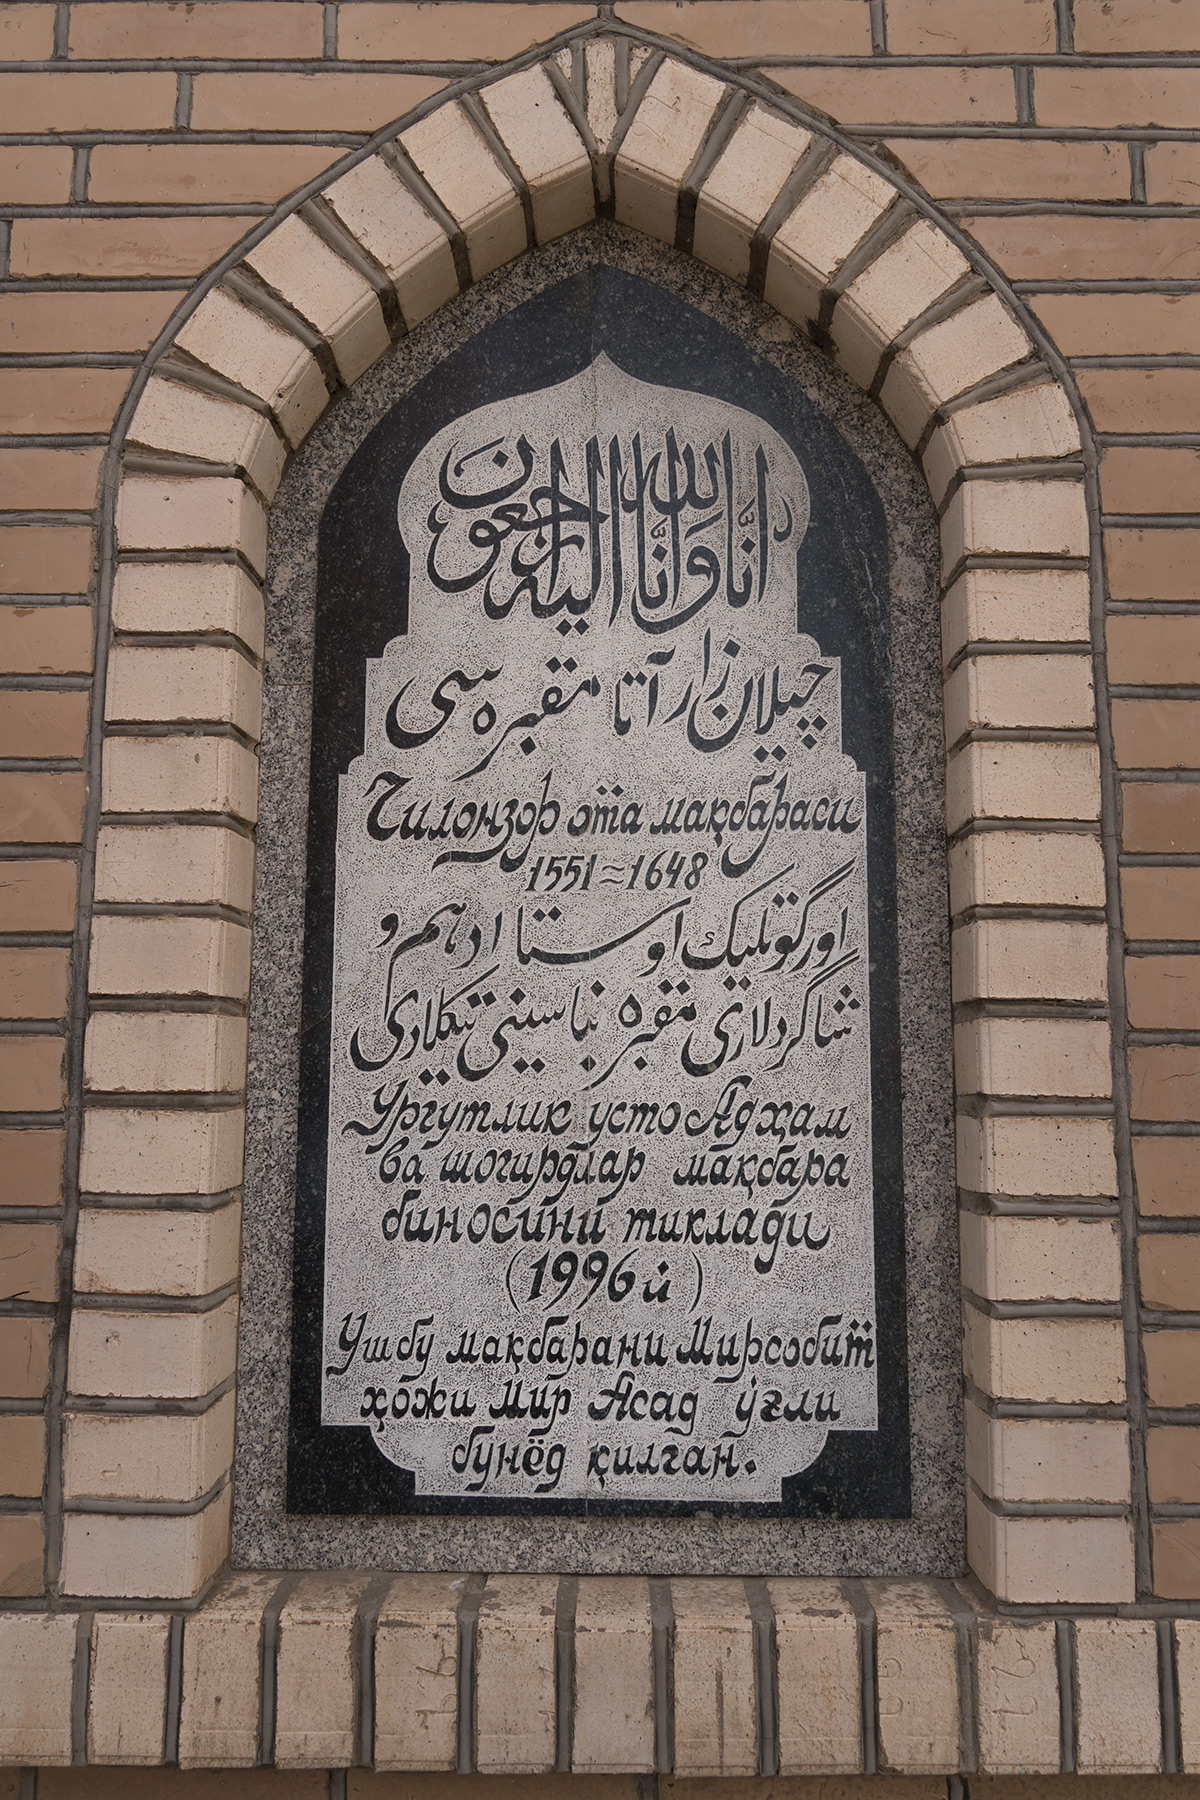 انَّا لله وَانَّا اليه راجعون
چیلان زار آتا مقبره سی
Чилонзор ота мақбараси
1551≈1648
اورگوتلیک اوستا ادهم و
شاگردلاری مقبره بناسینی تیکلادی
Ургутлик усто Адҳам
ва шогирдлар мақбара
биносини тиклади
(1996 й)
Ушбу мақбарани Мирсобит
ҳожи Мир Асад ўғли
бунёд қилган.